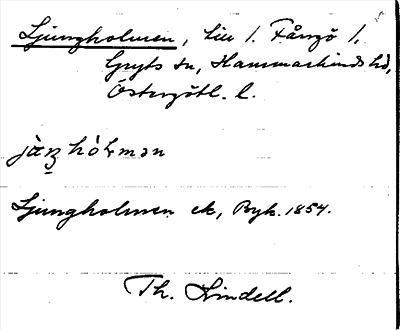 Ljungholmen, hm l. Fångö l.
Gryts sn, Hammarkinds hd,
Östergötl. l.
Ljungholmen ek, Byk. 1854.
Th. Lindell.